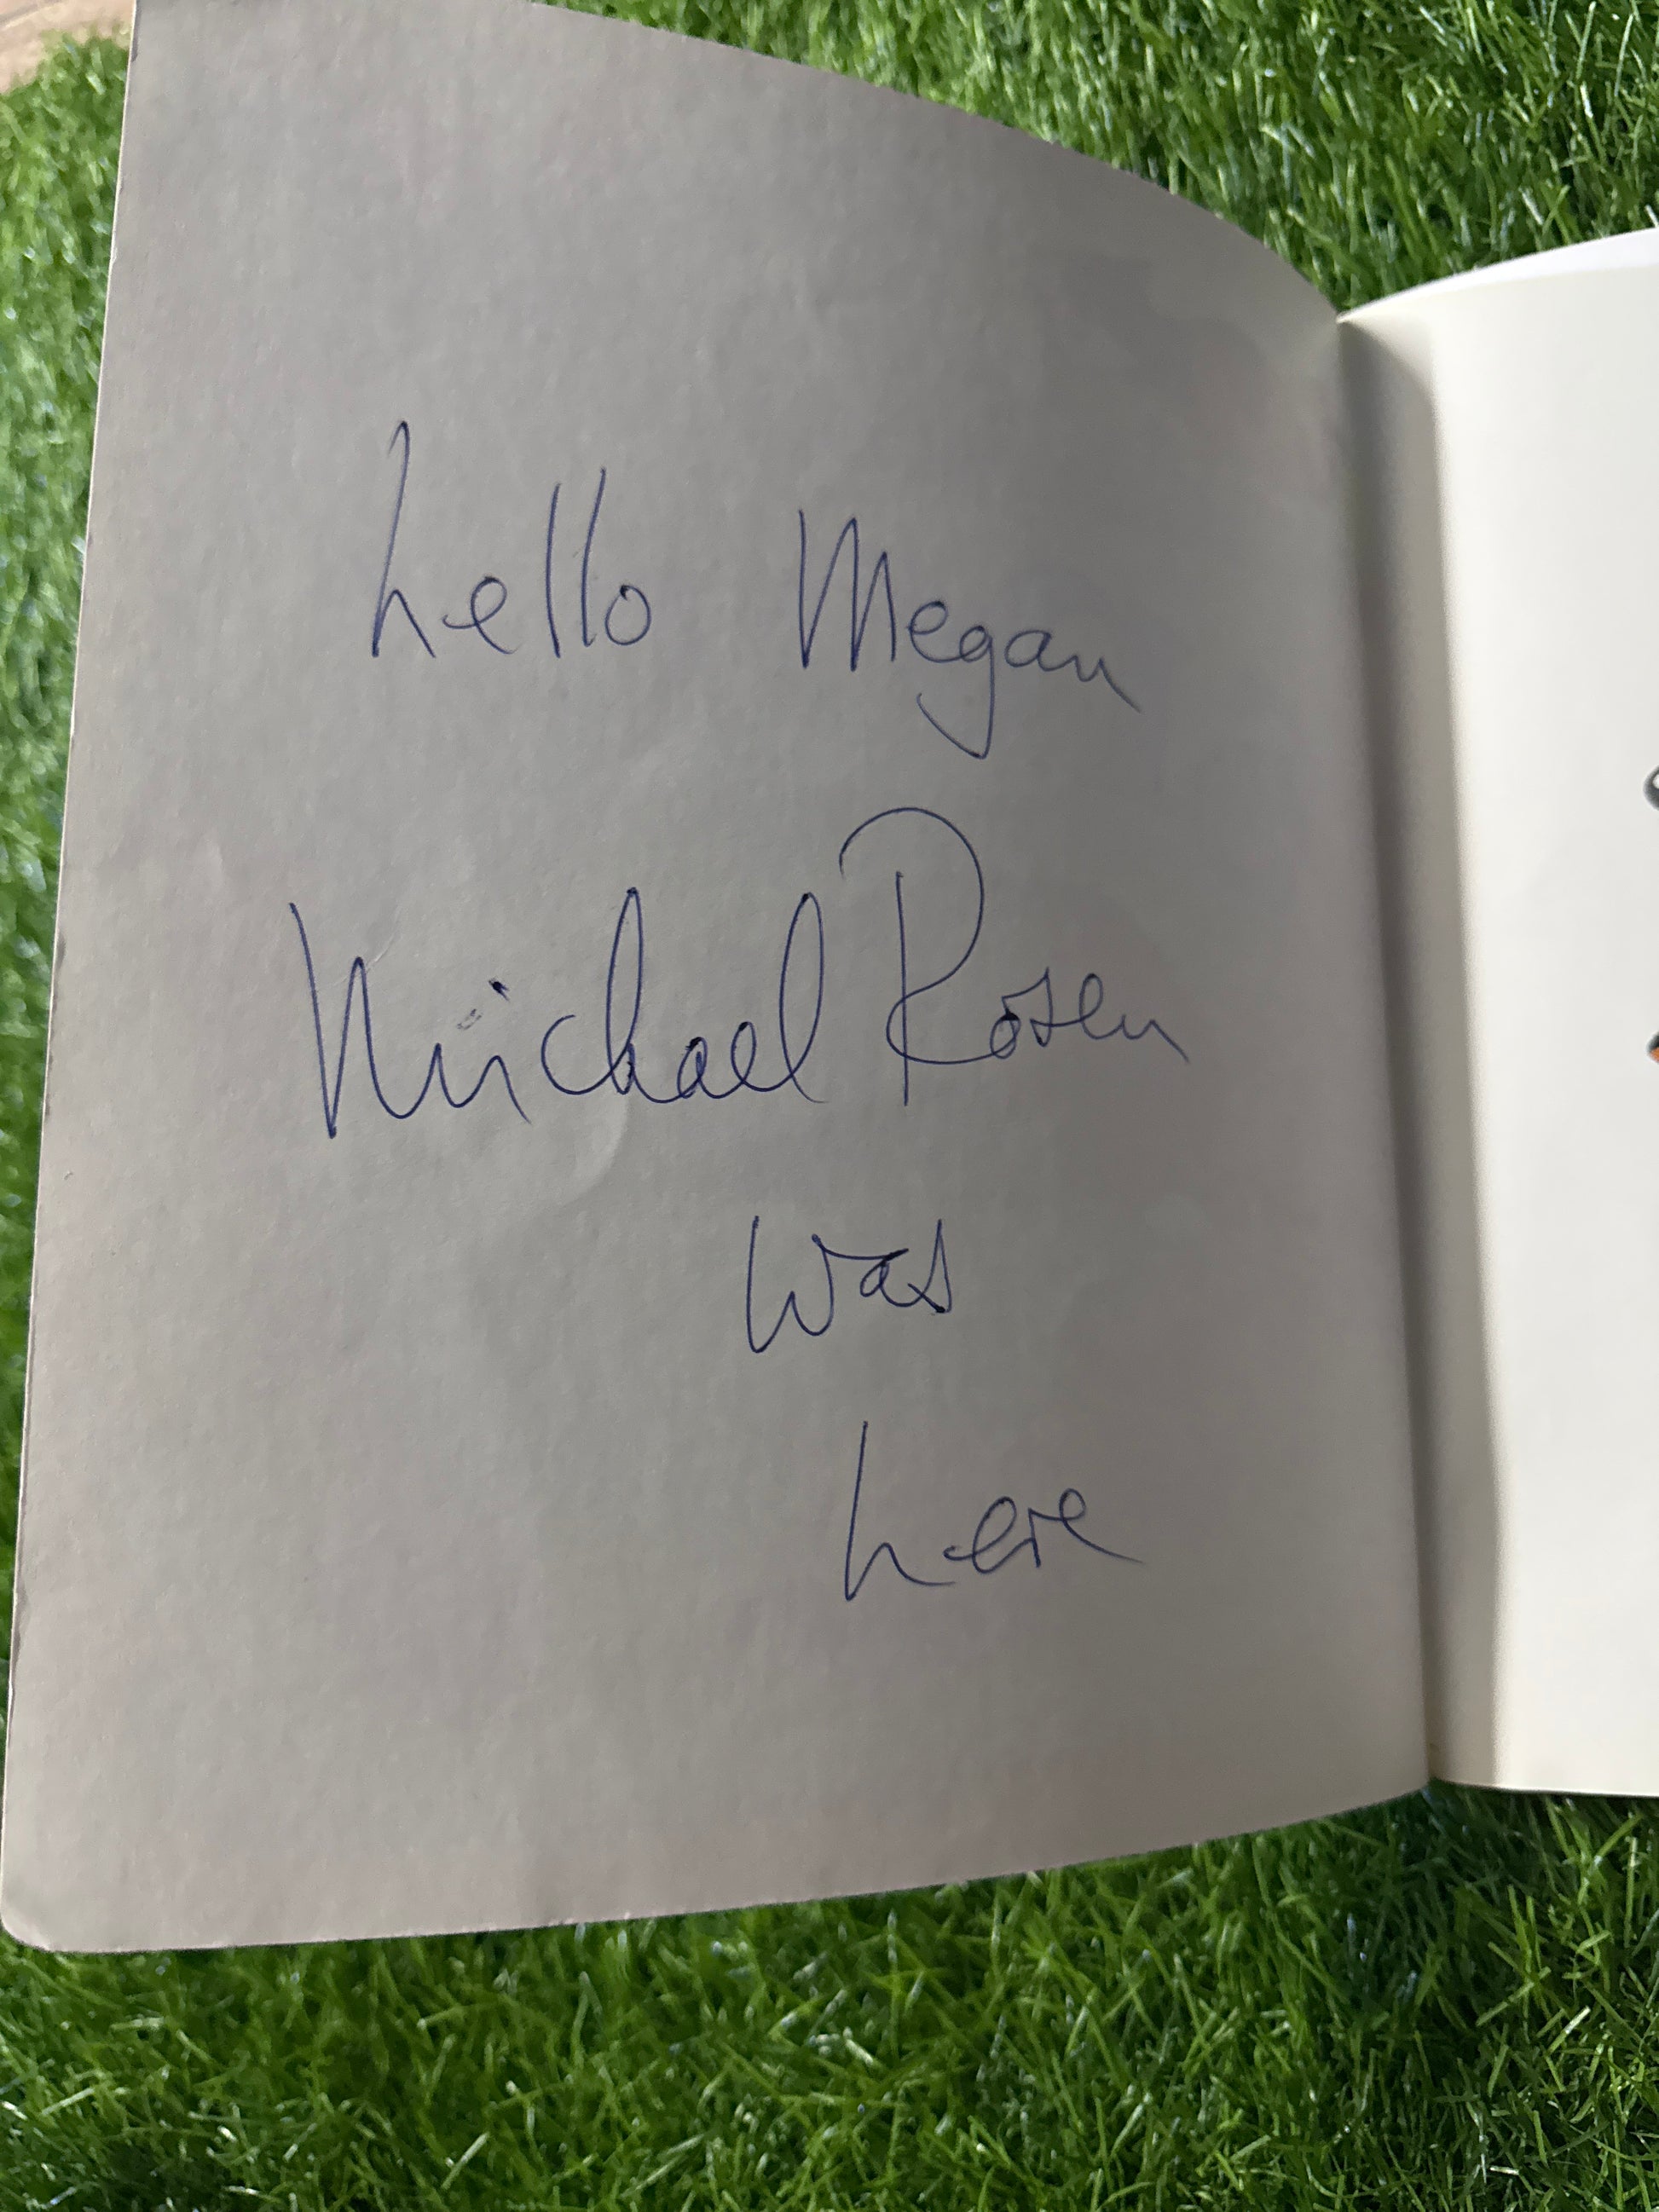 hello Megan
Michael Rosen
was
here